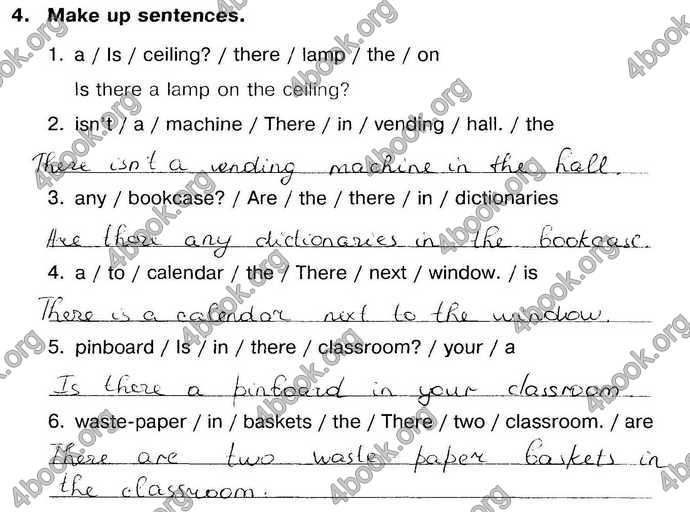 4. Make up sentences.
1. a / Is / ceiling? / there / lamp / the / on
Is there a lamp on the ceiling?
2. isn't / a / machine / There / in / vending / hall. / the
There isn't a vending machine in the hall.
3. any / bookcase? / Are / the / there / in / dictionaries
Are there any dictionaries in the bookcase.
4. a / to / calendar / the / There / next / window. / is
There is a calendar next to the window.
5. pinboard / Is / in / there / classroom? / your / a
Is there a pinboard in your classroom
6. waste-paper / in / baskets / the / There / two / classroom. / are
There are two waste paper baskets in
the classroom.
4book.org
4book.org
4book.org
4book.org
4book.org
4book.org
4book.org
4book.org
4book.org
4book.org
4book.org
4book.org
4book.org
4book.org